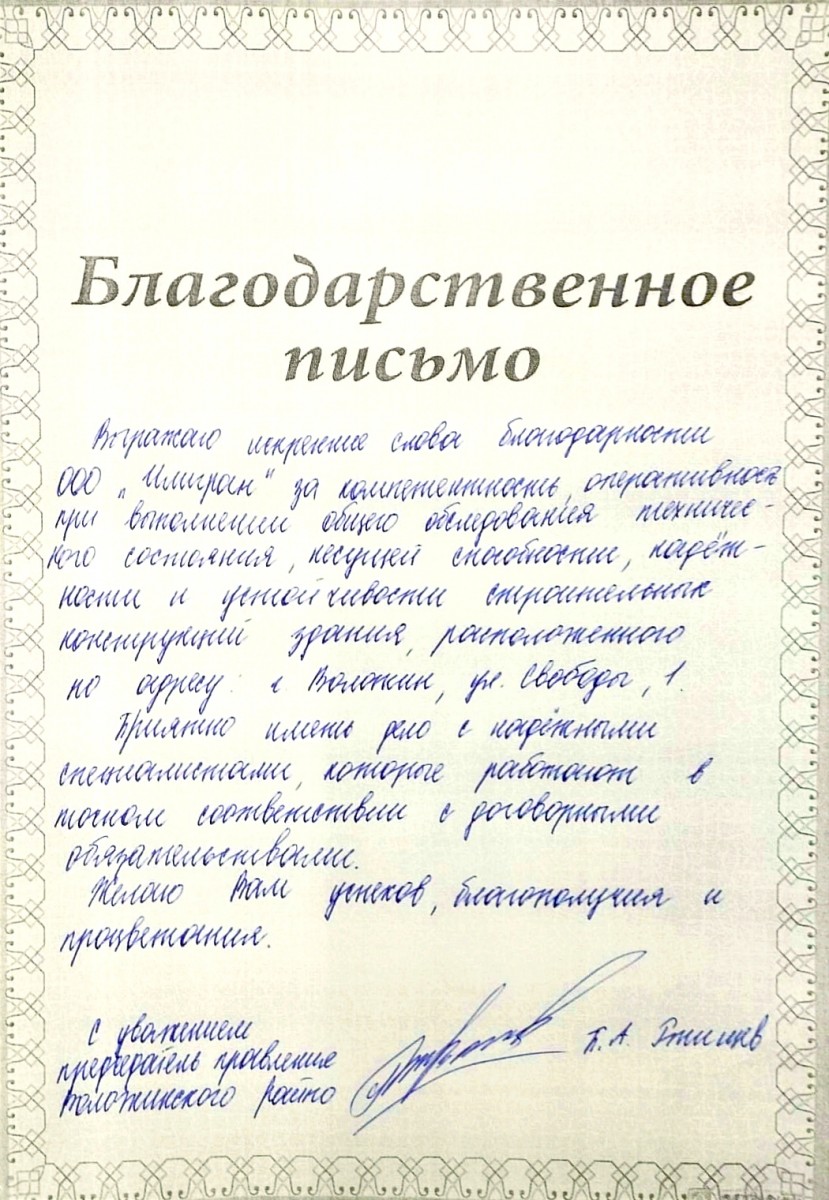 Благодарственное
письмо
Выражаю искренние слова благодарности
ООО „Илигран" за компетентность, оперативность
при выполнении общего обследования техничес-
кого состояния, несущей способности, надёж-
ности и устойчивости строительных
конструкций здания, расположенного
по адресу: г. Воложин, ул. Свободы, 1.
Приятно иметь дело с надёжными
специалистами, которые работают в
точном соответствии с договорными
обязательствами.
Желаю Вам успехов, благополучия и
процветания.
С уважением
председатель правления
Воложинского райпо
П. А.